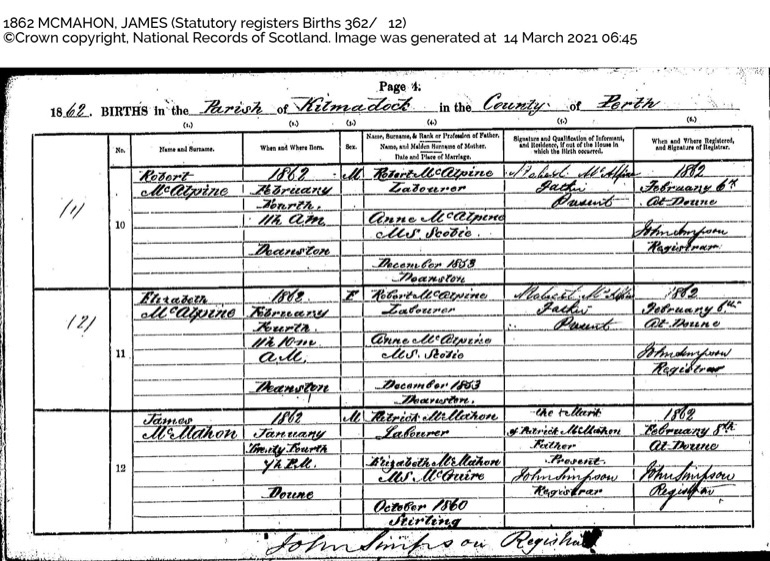 1862 MCMAHON, JAMES (Statutory registers Births 362/ 12)
©Crown copyright, National Records of Scotland. Image was generated at 14 March 2021 06:45
Page 4.
1862. BIRTHS in the Parish of Kilmadock in the County of Perth
(1.) (2.) (3.) (4.) (5.) (6.)
No.
Name and Surname.
When and Where Born.
Sex.
Name, Surname, & Rank or Profession of Father.
Name, and Maiden Surname of Mother.
Date and Place of Marriage.
Signature and Qualification of Informant,
and Residence, if out of the House in
which the Birth occurred.
When and Where Registered,
and Signature of Registrar.
(1)
10
Robert
McAlpine
1862
February
Fourth.
11h A.M.
Deanston
M
Robert McAlpine
Labourer
Anne McAlpine
M.S. Scobie.
December 1853
Deanston
Robert McAlpin
Father
Present
1862
February 6th
At Doune
John Simpson
Registrar
(2)
11
Elizabeth
McAlpine
1862.
February
Fourth.
11h 10m
A.M.
Deanston
F
Robert McAlpine
Labourer
Anne McAlpine
M.S. Scobie
December 1853
Deanston.
Robert McAlpin
Father
Present
1862
February 6th
At Doune
John Simpson
Registrar
12
James
McMahon
1862
January
Twenty Fourth
7h P.M.
Doune
M
Patrick McMahon
Labourer
Elizabeth McMahon
M.S. McGuire
October 1860
Stirling
of Patrick McMahon
Father
Present.
John Simpson
Registrar
1862
February 8th
At Doune
John Simpson
Registrar
John Simpson Registrar